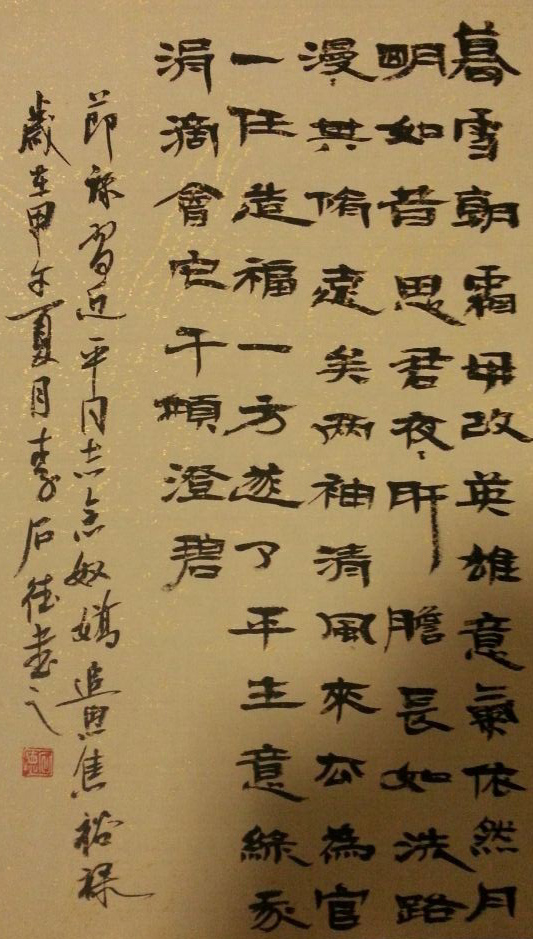 暮雪朝霜毋改英雄意氣依然月
明如昔思君夜〻肝膽長如洗路
漫〻其脩遠矣兩袖清風來去為官
一任造福一方遂了平生意綠我
涓滴會它千頃澄碧
節錄習近平同志念奴嬌追思焦裕祿
歲在甲午夏月李石德書之